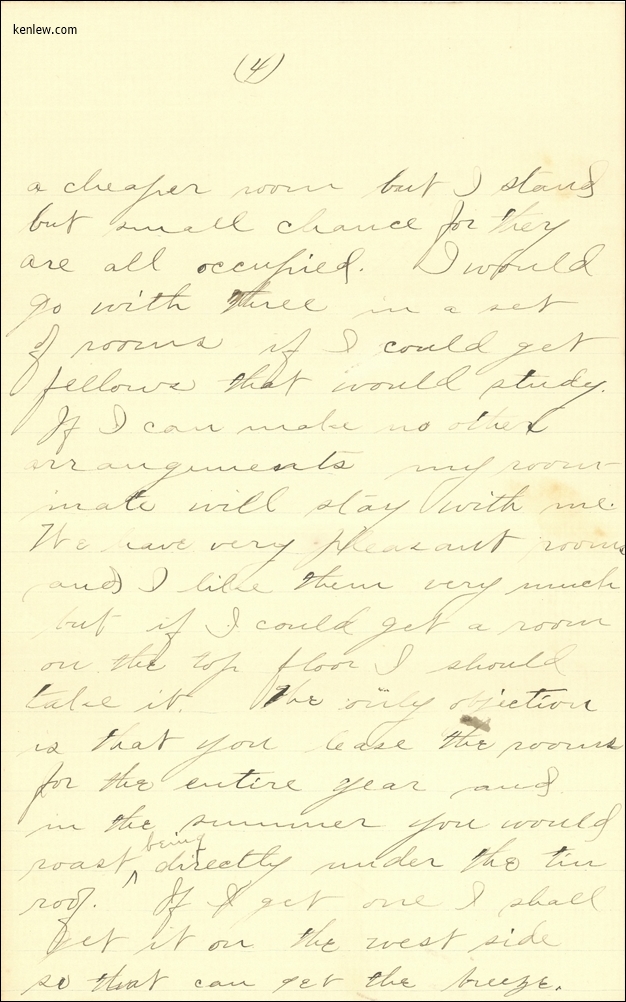 kenlew.com
(4)
a cheaper room but I stand
but small chance for they
are all occupied. I would
go with three in a set
of rooms if I could get
fellows that would study.
If I can make no other
arrangements my room-
mate will stay with me.
We have very pleasant rooms
and I like them very much
but if I could get a room
on the top floor I should
take it. The only objection
is that you lease the rooms
for the entire year and
in the summer you would
being
roast ^ directly under the tin
roof. If I get one I shall
get it on the west side
so that can get the breeze.